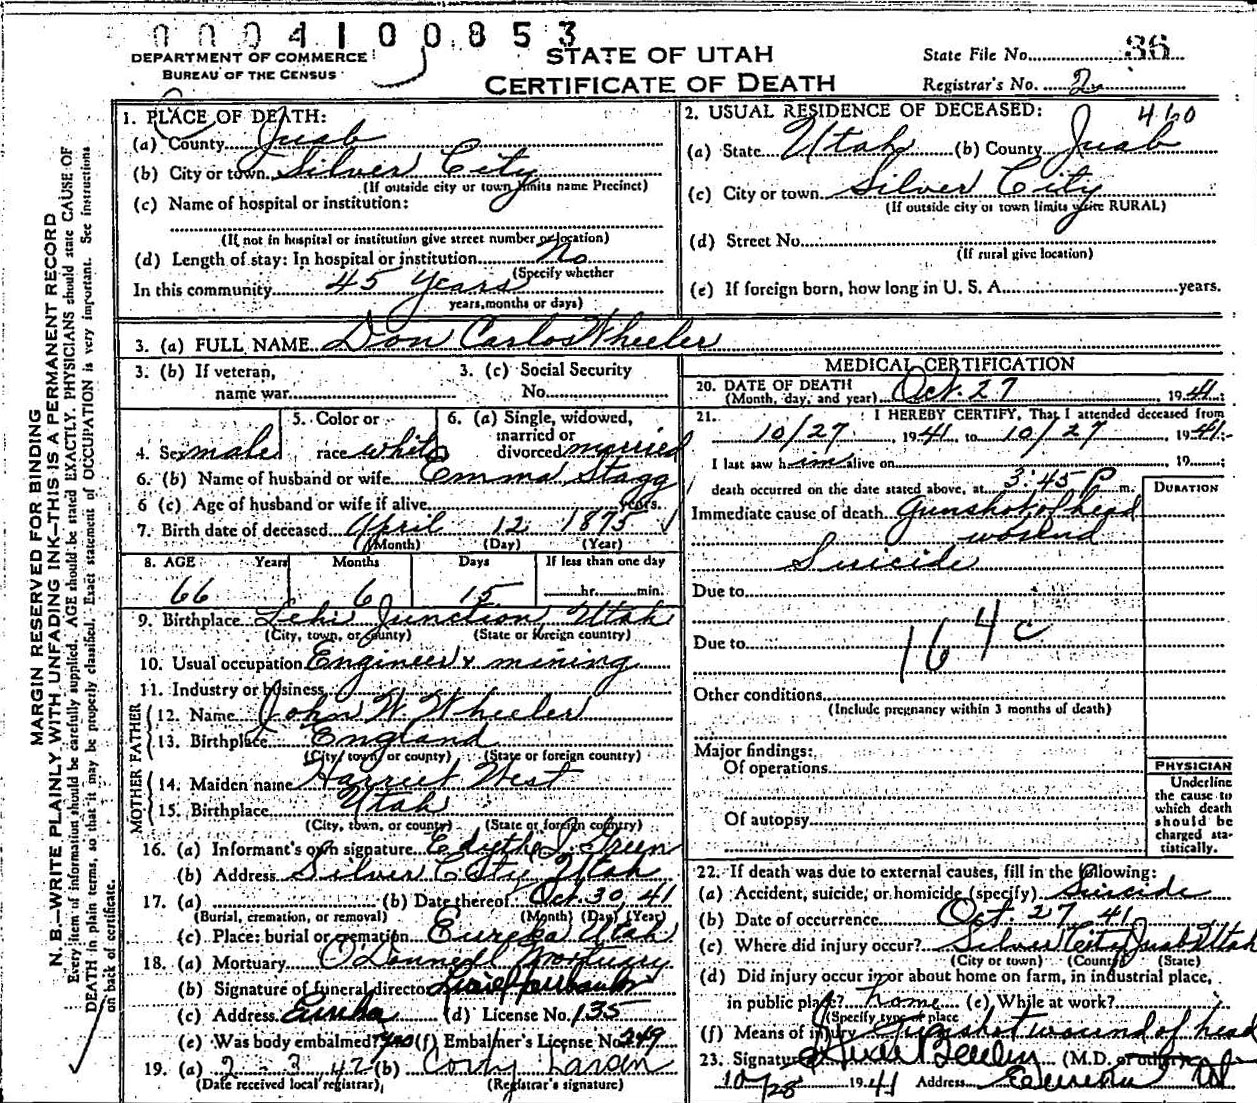 0004100853
DEPARTMENT OF COMMERCE
BUREAU OF THE CENSUS
STATE OF UTAH
CERTIFICATE OF DEATH
State File No. 36
Registrar's No. 2
MARGIN RESERVED FOR BINDING
N. B.—WRITE PLAINLY WITH UNFADING INK—THIS IS A PERMANENT RECORD
Every item of information should be carefully supplied. AGE should be stated EXACTLY. PHYSICIANS should state CAUSE OF
DEATH in plain terms, so that it may be properly classified. Exact statement of OCCUPATION is very important. See instructions
on back of certificate.
1. PLACE OF DEATH:
(a) County Juab
(b) City or town Silver City
(If outside city or town limits name Precinct)
(c) Name of hospital or institution:
(If not in hospital or institution give street number or location)
(d) Length of stay: In hospital or institution No
(Specify whether
In this community 45 Years
years, months or days)
2. USUAL RESIDENCE OF DECEASED: 460
(a) State Utah (b) County Juab
(c) City or town Silver City
(If outside city or town limits write RURAL)
(d) Street No.
(If rural give location)
(e) If foreign born, how long in U. S. A. years.
3. (a) FULL NAME Don Carlos Wheeler
3. (b) If veteran,
name war
3. (c) Social Security
No.
4. Sex male
5. Color or
race white
6. (a) Single, widowed,
married or
divorced married
6. (b) Name of husband or wife Emma Stagg
6 (c) Age of husband or wife if alive years.
7. Birth date of deceased April 12 1875
(Month) (Day) (Year)
8. AGE Years Months Days If less than one day
66 6 15 hr. min.
9. Birthplace Lehi Junction Utah
(City, town, or county) (State or foreign country)
10. Usual occupation Engineer & mining
11. Industry or business
FATHER
12. Name John W. Wheeler
13. Birthplace England
(City, town, or county) (State or foreign country)
MOTHER
14. Maiden name Harriet West
15. Birthplace Utah
(City, town, or county) (State or foreign country)
16. (a) Informant's own signature Edythe J Green
(b) Address Silver City Utah
17. (a) (b) Date thereof Oct. 30, 41
(Burial, cremation, or removal) (Month) (Day) (Year)
(c) Place: burial or cremation Eureka Utah
18. (a) Mortuary O'Donnell Mortuary
(b) Signature of funeral director
(c) Address Eureka (d) License No. 135
(e) Was body embalmed? yes (f) Embalmer's License No. 249
19. (a) 2-3-42 (b) Larsen
(Date received local registrar) (Registrar's signature)
MEDICAL CERTIFICATION
20. DATE OF DEATH
(Month, day, and year) Oct. 27, 1941
21. I HEREBY CERTIFY, That I attended deceased from
10/27, 1941 to 10/27, 1941
I last saw him alive on , 19 ;
death occurred on the date stated above, at 3:45 P m.
DURATION
Immediate cause of death Gunshot of head
wound
Suicide
Due to
Due to 164c
Other conditions
(Include pregnancy within 3 months of death)
Major findings:
Of operations
Of autopsy
PHYSICIAN
Underline
the cause to
which death
should be
charged sta-
tistically.
22. If death was due to external causes, fill in the following:
(a) Accident, suicide, or homicide (specify) Suicide
(b) Date of occurrence Oct. 27 41
(c) Where did injury occur? Silver City Juab Utah
(City or town) (County) (State)
(d) Did injury occur in or about home on farm, in industrial place,
in public place? home (e) While at work?
(Specify type of place
(f) Means of injury Gunshot wound of head
23. Signature (M.D. or other)
10/28 1941 Address Eureka